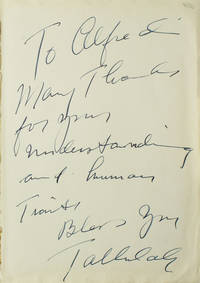 To Alfredi
Many Thanks
for your
understanding
and human
Traits
Bless you
Tallulah